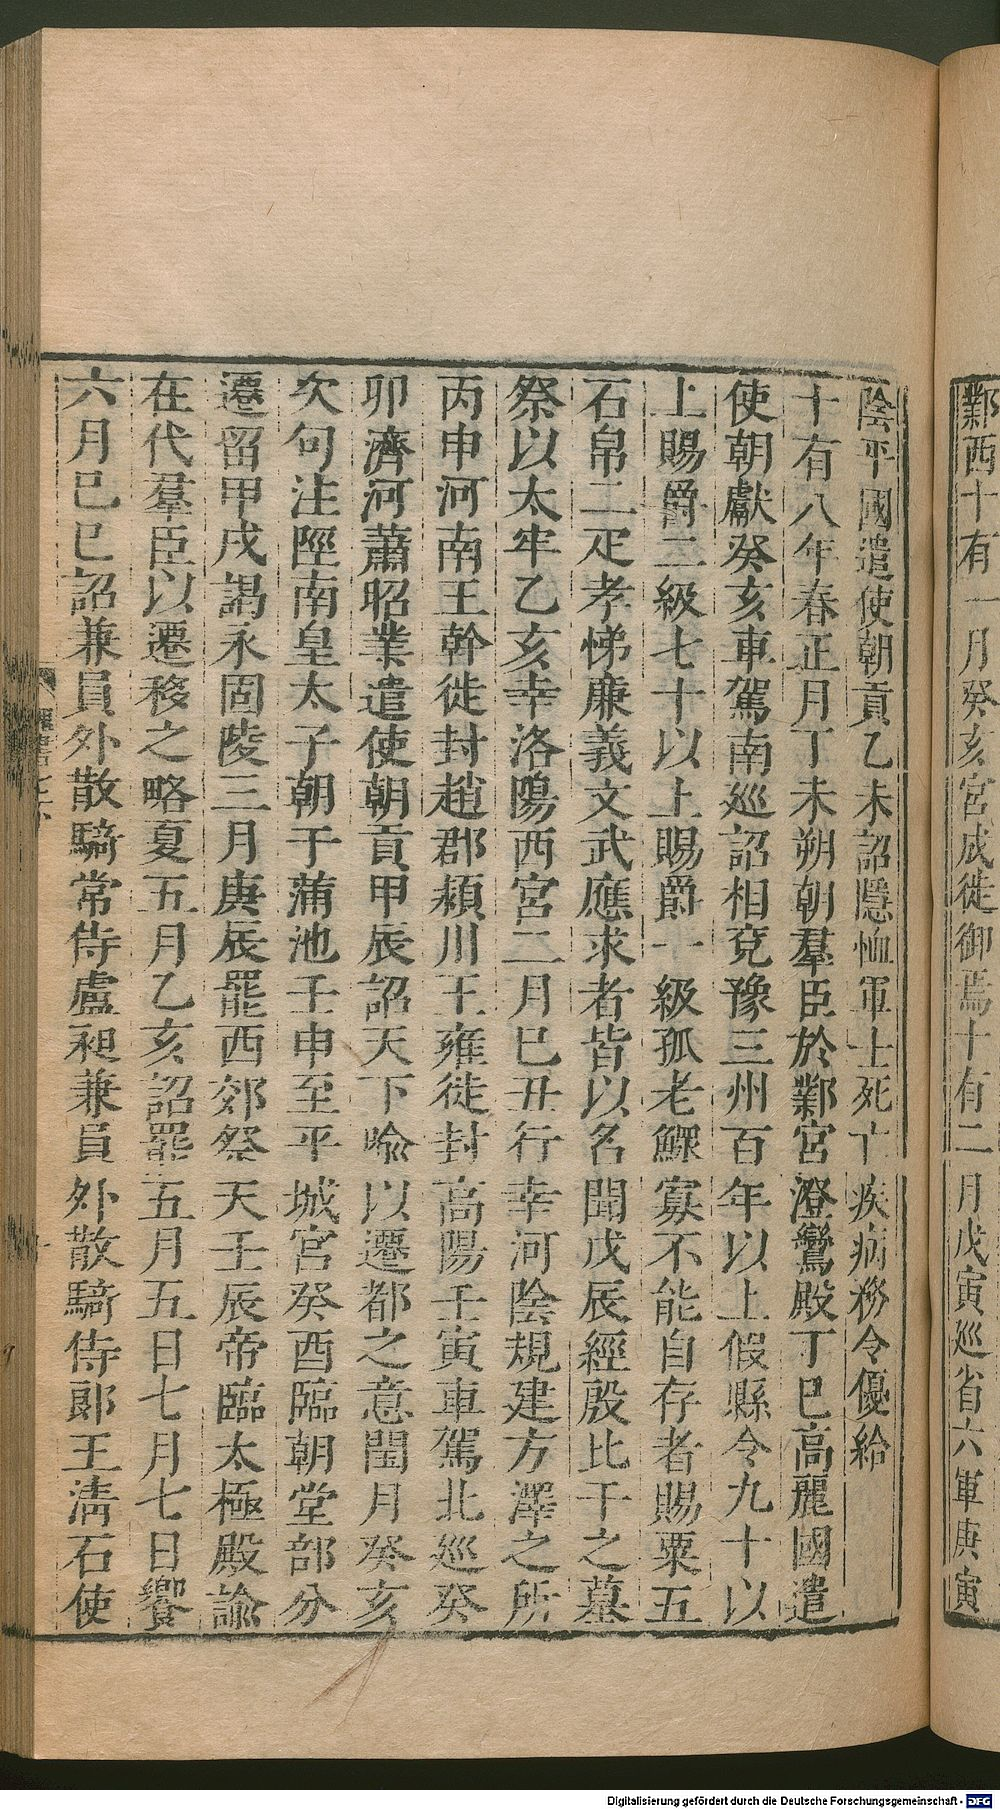 鄴西十有一月癸亥宮成徙御焉十有二月戊寅巡省六軍庚寅
陰平國遣使朝貢乙未詔隱恤軍士死亡疾病務令優給
十有八年春正月丁未朔朝羣臣於鄴宮澄鸞殿丁巳高麗國遣
使朝獻癸亥車駕南巡詔相兗豫三州百年以上假縣令九十以
上賜爵二級七十以上賜爵一級孤老鰥寡不能自存者賜粟五
石帛二疋孝悌廉義文武應求者皆以名聞戊辰經殷比干之墓
祭以太牢乙亥幸洛陽西宮二月巳丑行幸河陰規建方澤之所
丙申河南王幹徙封趙郡潁川王雍徙封高陽壬寅車駕北巡癸
卯濟河蕭昭業遣使朝貢甲辰詔天下喻以遷都之意閏月癸亥
次句注陘南皇太子朝于蒲池壬申至平城宮癸酉臨朝堂部分
遷留甲戌謁永固陵三月庚辰罷西郊祭天壬辰帝臨太極殿諭
在代羣臣以遷移之略夏五月乙亥詔罷五月五日七月七日饗
六月巳巳詔兼員外散騎常侍盧昶兼員外散騎侍郎王清石使
Digitalisierung gefördert durch die Deutsche Forschungsgemeinschaft - DFG